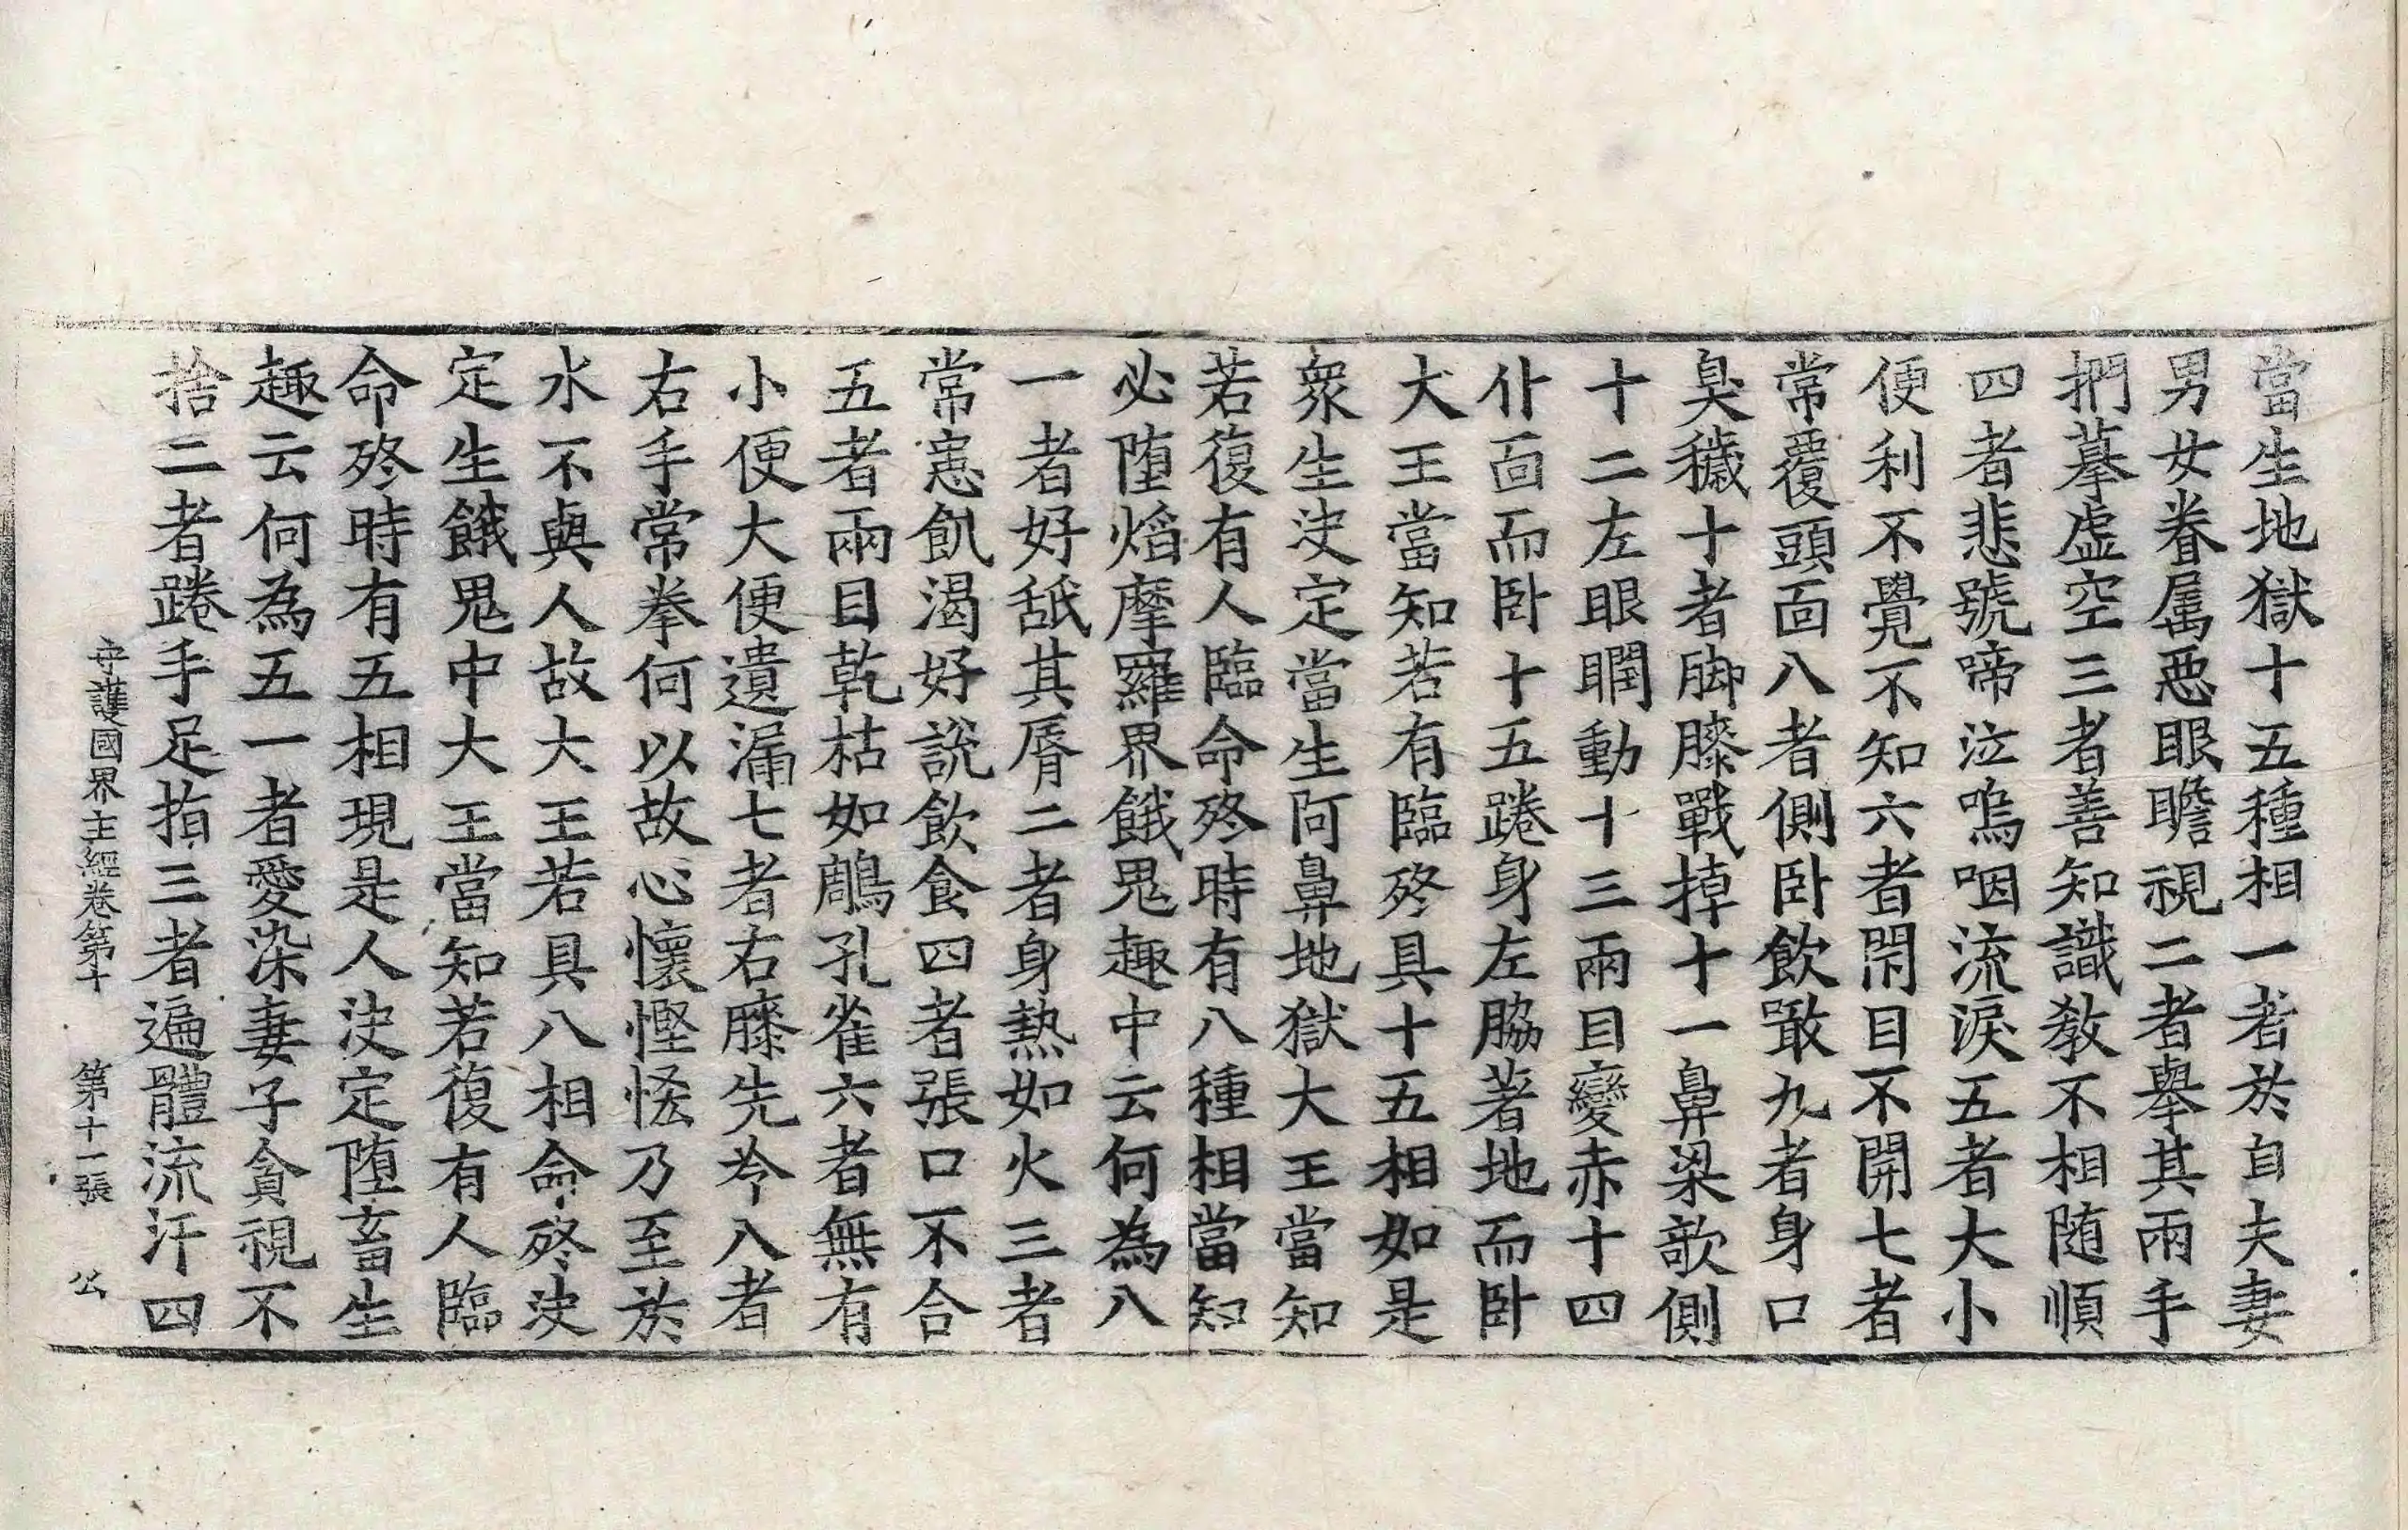 當生地獄十五種相一者於自夫妻
男女眷属惡眼瞻視二者舉其兩手
捫摹虛空三者善知識教不相随順
四者悲號啼泣嗚咽流淚五者大小
便利不覺不知六者閇目不開七者
常覆頭面八者側卧飲噉九者身口
臭穢十者脚膝戰掉十一鼻梁欹側
十二左眼瞤動十三兩目變赤十四
仆面而卧十五踡身左脇著地而卧
大王當知若有臨終具十五相如是
衆生決定當生阿鼻地獄大王當知
若復有人臨命終時有八種相當知
必墮焰摩羅界餓鬼趣中云何為八
一者好舐其脣二者身熱如火三者
常患飢渴好說飲食四者張口不合
五者兩目乾枯如鵰孔雀六者無有
小便大便遺漏七者右膝先冷八者
右手常拳何以故心懷慳悋乃至於
水不與人故大王若具八相命終決
定生餓鬼中大王當知若復有人臨
命終時有五相現是人決定墮畜生
趣云何為五一者愛染妻子貪視不
捨二者踡手足指三者遍體流汗四
守護國界主經卷第十 第十一張 公